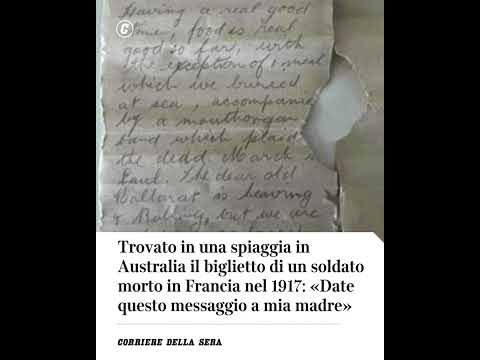 Having a real good
time, food is real
good so far, with
the exception of 1 meal
which we buried
at sea, accompanied
by a mouthorgan
band which plaid
the dead March in
Saul. The dear old
Ballarat is heaving
& Rolling, but we are
C
Trovato in una spiaggia in
Australia il biglietto di un soldato
morto in Francia nel 1917: «Date
questo messaggio a mia madre»
CORRIERE DELLA SERA